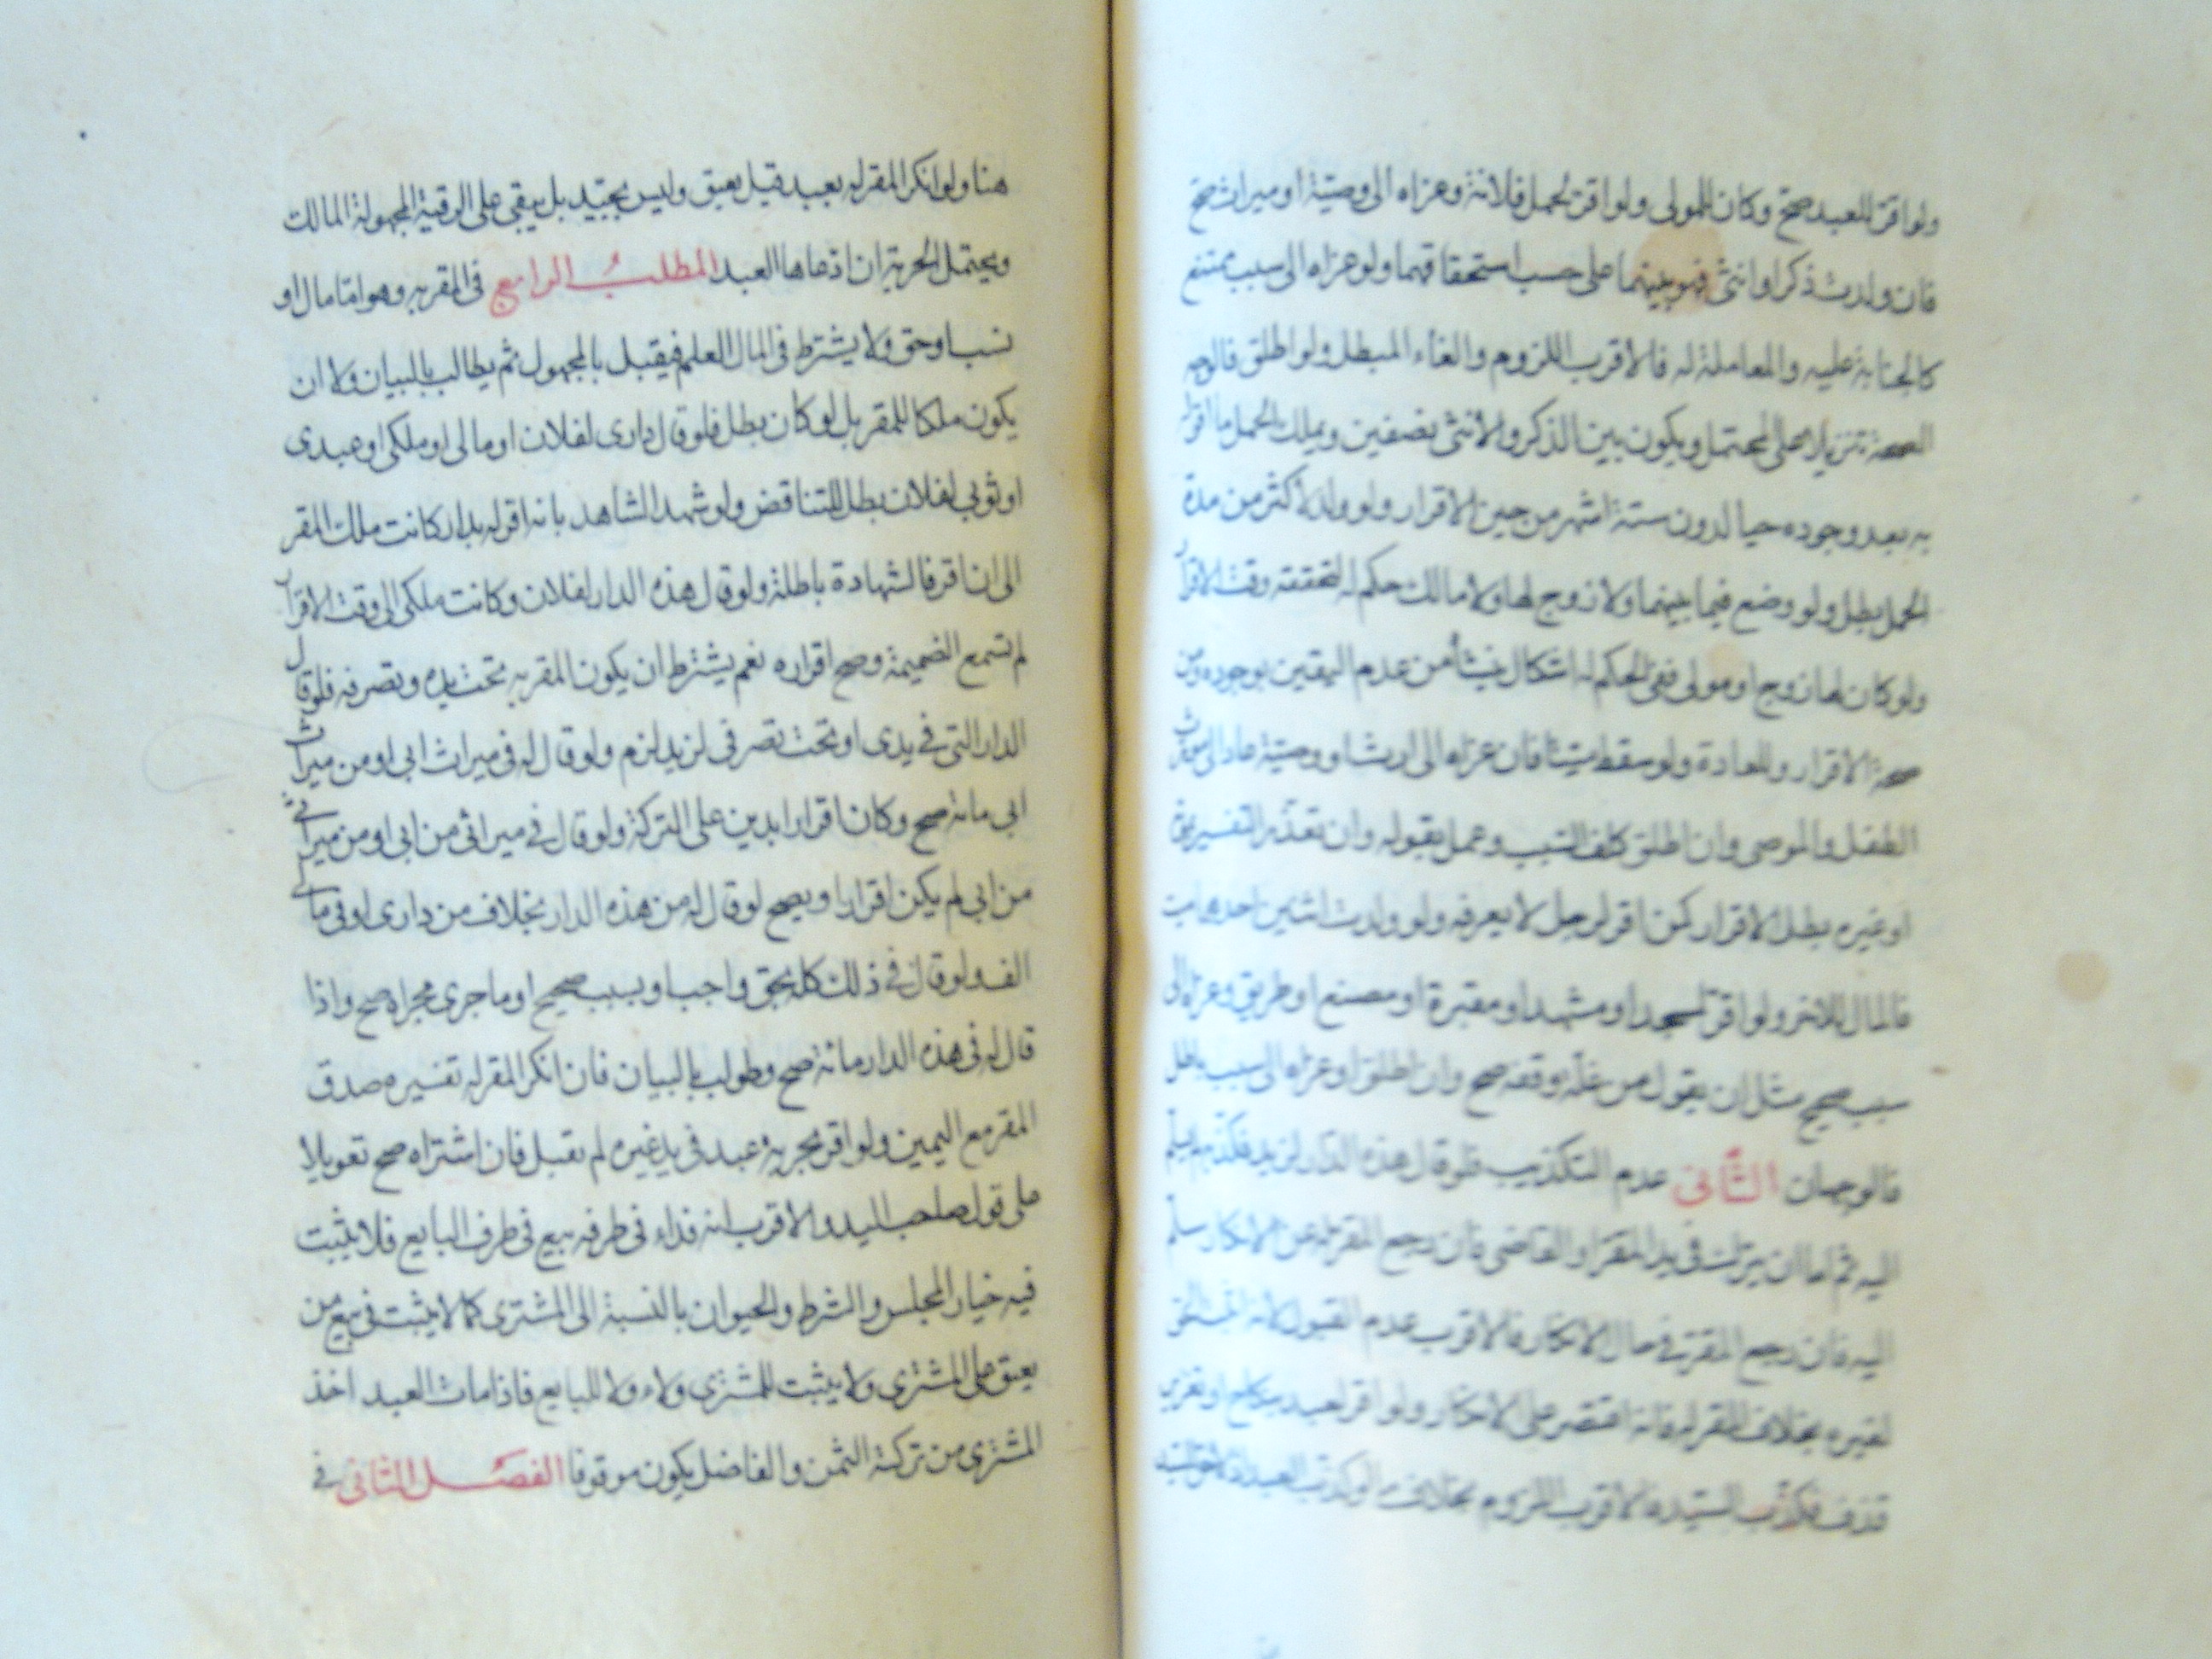 ولو اقر للعبد صح وكان للمولى ولو اقر لحمل فلانة وعزاه الى وصية او ميراث صح
فان ولدت ذكرا وانثى فهو بينهما على حسب استحقاقهما ولو عزاه الى سبب ممتنع
كالجناية عليه والمعاملة له فالاقرب اللزوم والغاء المبطل ولو اطلق فالوجه
الصحة تنزيلا على المحتمل ويكون بين الذكر والانثى نصفين ويملك الحمل ما اقر
به بعد وجوده حيا لدون ستة اشهر من حين الاقرار ولو ولد لاكثر من مدة
الحمل بطل ولو وضع فيما بينهما ولا زوج لها ولا مالك حكم له لتحققه وقت الاقرار
ولو كان لها زوج او مولى ففى الحكم له اشكال ينشأ من عدم اليقين بوجوده ومن
صحة الاقرار وللعادة ولو سقط ميتا فان عزاه الى ارث او وصية عاد الى مورث
الطفل والموصى وان اطلق كلف السبب وعمل بقوله وان تعذر التفسير بموته
او غيره بطل الاقرار كمن اقر لرجل لا يعرفه ولو ولدت اثنين احدهما ميت
فالمال للاخر ولو اقر لمسجد او مشهد او مقبرة او مصنع او طريق وعزاه الى
سبب صحيح مثل ان يقول من غلة وقفه صح وان اطلق او عزاه الى سبب باطل
فالوجهان الثانى عدم التكذيب فلو قال هذه الدار لزيد فكذبه لم يسلم
اليه ثم اما ان يترك فى يد المقر او القاضى فان رجع المقر له عن الانكار سلم
اليه فان رجع المقر فى حال الانكار فالاقرب عدم القبول لانه اثبت الحق
لغيره بخلاف المقر له فانه اقتصر على الانكار ولو اقر لعبد بنكاح او تعزير
قذف فكذب السيد فالاقرب اللزوم بخلاف ما لو كذب العبد اذ لا حق للسيد
هنا ولو انكر المقر له بعبد قيل يعتق وليس بجيد بل يبقى على الرقية المجهولة المالك
ويحتمل الحرية ان ادعاها العبد المطلب الرابع فى المقر به وهو اما مال او
نسب او حق ولا يشترط فى المال العلم فيقبل بالمجهول ثم يطالب بالبيان ولا ان
يكون ملكا للمقر بل لو كان بطل فلو قال دارى لفلان او مالى او ملكى او عبدى
او ثوبى لفلان بطل للتناقض ولو شهد الشاهد بانه اقر له بدار كانت ملك المقر
الى ان اقر فالشهادة باطلة ولو قال هذه الدار لفلان وكانت ملكى الى وقت الاقرار
لم تسمع الضميمة وصح اقراره نعم يشترط ان يكون المقر به تحت يده وتصرفه فلو قال
الدار التى فى يدى او تحت تصرفى لزيد لزم ولو قال له فى ميراث ابى او من ميراث
ابى مائة صح وكان اقرارا بدين على التركة ولو قال فى ميراثى من ابى او من ميراثى
من ابى لم يكن اقرارا ويصح لو قال له من هذه الدار بخلاف من دارى او فى مالى
الف ولو قال فى ذلك كله بحق واجب او بسبب صحيح او ما جرى مجراه صح واذا
قال له فى هذه الدار مائة صح وطولب بالبيان فان انكر المقر له تفسيره صدق
المقر مع اليمين ولو اقر بحرية عبد فى يد غيره لم تقبل فان اشتراه صح تعويلا
على قول صاحب اليد والاقرب انه فداء فى طرفه بيع فى طرف البايع فلا يثبت
فيه خيار المجلس والشرط والحيوان بالنسبة الى المشترى كما لا يثبت فى بيع من
يعتق على المشترى ولا يثبت للمشترى ولاء ولا للبايع فاذا مات العبد اخذ
المشترى من تركته الثمن والفاضل يكون موقوفا الفصل الثانى فى